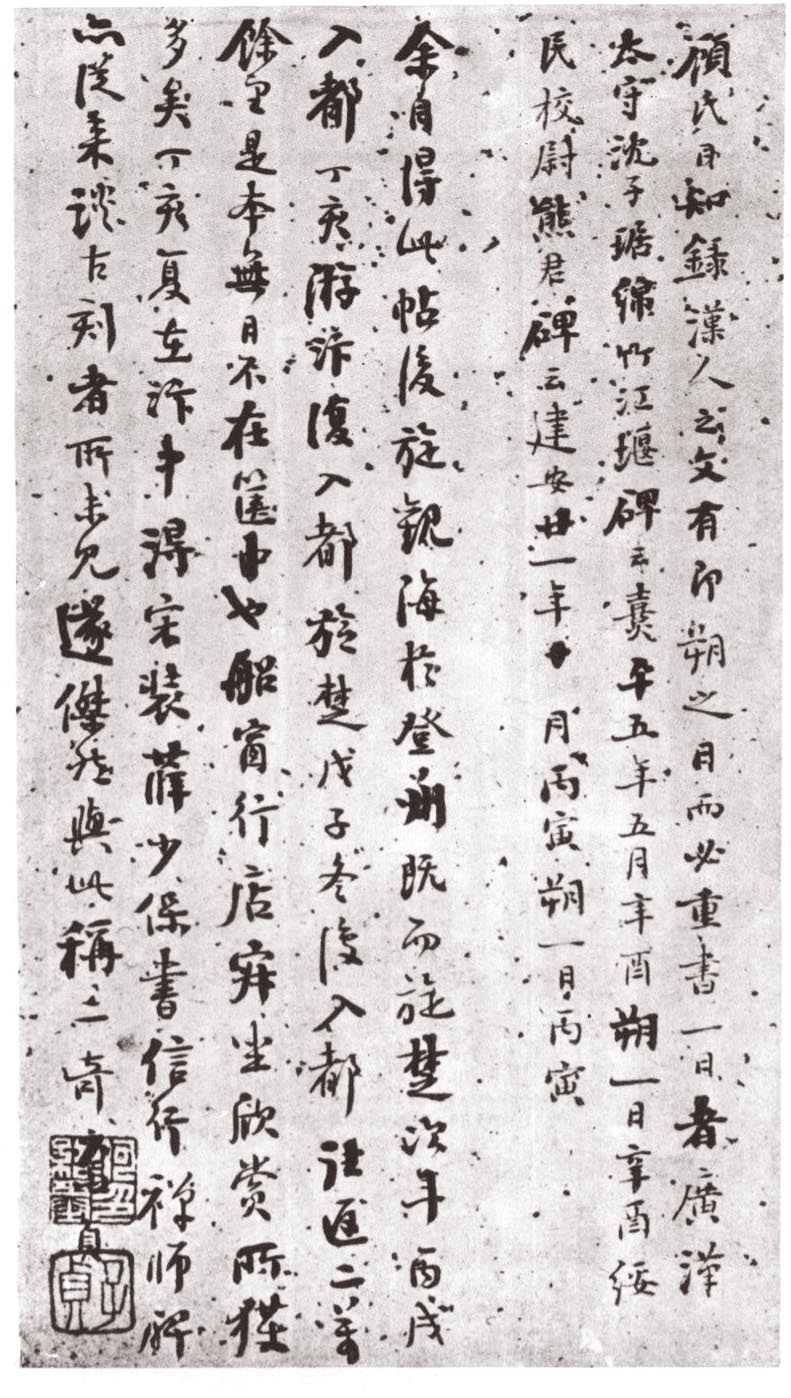 顧氏日知錄漢人之文有即朔之日而必重書一日者廣漢
太守沈子琚緜竹江堰碑云熹平五年五月辛酉朔一日辛酉綏
民校尉熊君碑云建安廿一年十月丙寅朔一日丙寅
余自得此帖後旋觀海於登州既而旋楚次年丙戌
入都丁亥游汴復入都旋楚戊子冬復入都往返二萬
餘里是本無日不在篋中也船窗行店寂坐欣賞所獲
多矣丁亥夏在汴中得宋裝薛少保書信行禪師碑
亦從來談古刻者所未見遂傑然與此稱二奇
子貞